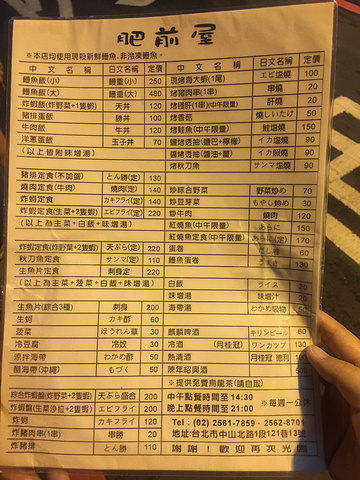 肥前屋
※本店均使用現殺新鮮鰻魚,非冷凍鰻魚。
中文名稱 日文名稱 定價
鰻魚飯(小) 鰻重(小) 250
鰻魚飯(大) 鰻重(大) 480
炸蝦飯(炸野菜+1隻蝦) 天丼 120
豬排蛋飯 勝丼 110
牛肉飯 牛丼 120
洋蔥蛋飯 玉子丼 70
(以上皆附味增湯)
豬排定食(不加蛋) とん勝(定) 130
燒肉定食(牛肉) 燒肉(定) 140
炸蚵定食 カキフライ(定) 140
炸蝦定食(生菜+2隻蝦) エビフライ(定) 200
(以上為主菜+白飯+味增湯)
炸蝦定食(炸野菜+2隻蝦) 天ぷら(定) 220
秋刀魚定食 サンマ(定) 190
生魚片定食 刺身定 220
(以上為主菜+菠菜+白飯+味增湯)
生魚片(綜合3種) 刺身 200
生蚵 カキ酢 60
菠菜 ほうれん草 30
冷豆腐 冷奴 30
涼拌海帶 わかめ酢 50
酷海帶(沖繩) もづく 50
綜合炸蝦盤(炸野菜+2隻蝦) 天ぷら盛合 200
炸蝦盤(生菜沙拉+2隻蝦) エビフライ 200
炸蚵 カキフライ 120
炸豬肉串(1串) 串勝 20
炸豬排 とん勝 110
中文名稱 日文名稱 定價
現烤海大蝦(1尾) エビ塩燒 100
烤豬肉串(1串) 串燒 20
烤雞肝(1串)(中午限量) 肝燒 20
烤香菇 燒しいたけ 50
烤鮭魚(中午限量) 鮭塩燒 150
鹽烤透抽(鹽巴+檸檬) イカ塩燒 90
醬烤透抽(醬油+薑) イカ照燒 90
烤秋刀魚 サンマ塩燒
炒綜合野菜 野菜炒め 70
炒豆芽菜 もやし炒め 30
炒牛肉 燒肉 120
紅燒魚(中午限量) あらに 150
紅燒魚定食(中午限量) あらに(定) 170
蛋卷
鰻魚蛋卷 うまき 130
白飯 ライス
味增湯 味增汁 20
海帶湯 わかめ吸物 50
麒麟啤酒 キリンビール 60
冷酒 月桂冠 ワンカップ 130
熱清酒 月桂冠 德利
陳年紹興酒
※提供免費烏龍茶(請自取)
中午點餐時間至 14:30
晚上點餐時間至 21:00 ※每週一公休
Tel:(02) 2561-7859・2562-8701
地址:台北市中山北路1段121巷13號
謝謝!歡迎再次光臨